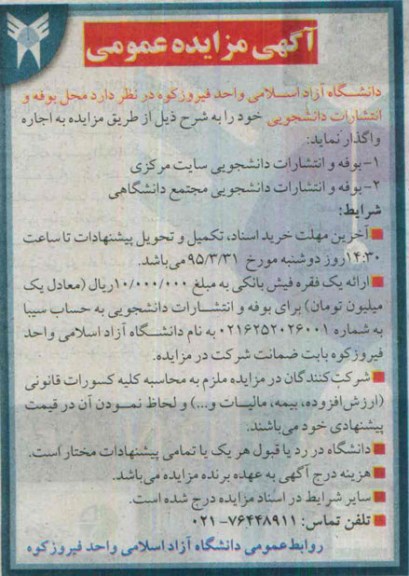 آگهی مزایده عمومی
دانشگاه آزاد اسلامی واحد فیروزکوه در نظر دارد محل بوفه و
انتشارات دانشجویی خود را به شرح ذیل از طریق مزایده به اجاره
واگذار نماید:
۱-بوفه و انتشارات دانشجویی سایت مرکزی
۲-بوفه و انتشارات دانشجویی مجتمع دانشگاهی
شرایط:
آخرین مهلت خرید اسناد، تکمیل و تحویل پیشنهادات تا ساعت
۱۴:۳۰ روز دوشنبه مورخ ۹۵/۳/۳۱ می باشد.
ارائه یک فقره فیش بانکی به مبلغ ۱۰/۰۰۰/۰۰۰ ریال (معادل یک
میلیون تومان) برای بوفه و انتشارات دانشجویی به حساب سیبا
به شماره ۰۲۱۶۲۵۲۰۲۶۰۰۱ به نام دانشگاه آزاد اسلامی واحد
فیروزکوه بابت ضمانت شرکت در مزایده.
شرکت کنندگان در مزایده ملزم به محاسبه کلیه کسورات قانونی
(ارزش افزوده، بیمه، مالیات و...) و لحاظ نمودن آن در قیمت
پیشنهادی خود می باشند.
دانشگاه در رد یا قبول هر یک یا تمامی پیشنهادات مختار است.
هزینه درج آگهی به عهده برنده مزایده می باشد.
سایر شرایط در اسناد مزایده درج شده است.
تلفن تماس: ۷۶۴۴۸۹۱۱-۰۲۱
روابط عمومی دانشگاه آزاد اسلامی واحد فیروزکوه